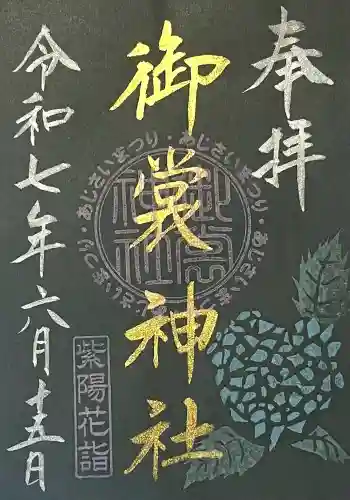 奉拝
御裳神社
令和七年六月十五日
・あじさいまつり・あじさいまつり・あじさいまつり・あじさいまつり
御裳神社
紫陽花詣